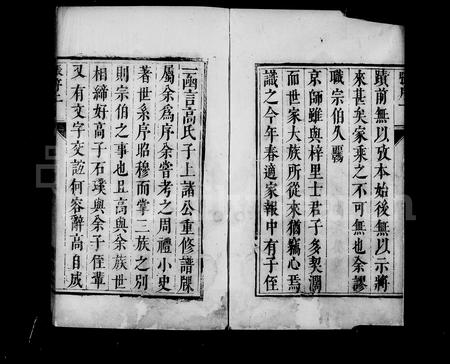 蹟前無以攷本始後無以示將
來甚矣家乘之不可無也余謬
職宗伯久羈
京師雖與梓里士君子多契濶
而世家大族所從來猶竊心焉
識之今年春適家報中有子侄
一函言高氏子上諸公重修譜牒
屬余為序余嘗考之周禮小史
著世系序昭穆而掌三族之別
則宗伯之事也且高與余族世
相締好高子石璞與余子侄輩
又有文字交誼何容辭高自成